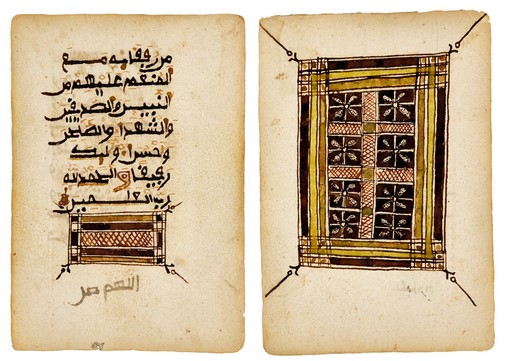 من رفقايه مع
المنعم عليهم من
النبيين والصديقين
والشهدا والصلحين
وحسن اوليك
رفيقا والحمد لله
رب العلمين
اللهم